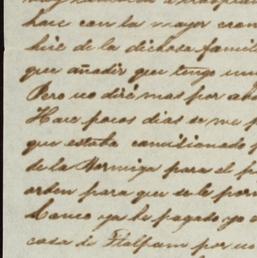 hace con la mayor
hic de la dichosa famil
que añadir que tengo un
Pero no diré mas por aho
Hace pocos dias se me p
que estaba comisionado p
de la Hormiga para el p
orden para que se le
banco ya le pagado yo
casa de por no